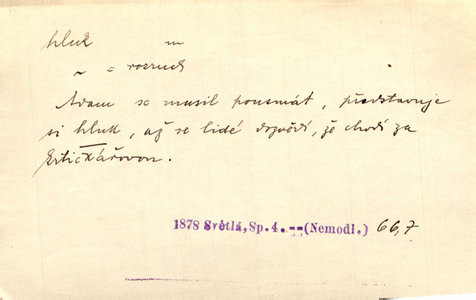 hluk m
~ = rozruch
Adam se musil pousmát, představuje
si hluk, až se lidé dozvědí, že chodí za
Krtičkářovou.
1878 Světlá, Sp. 4. -- (Nemodl.) 66,7